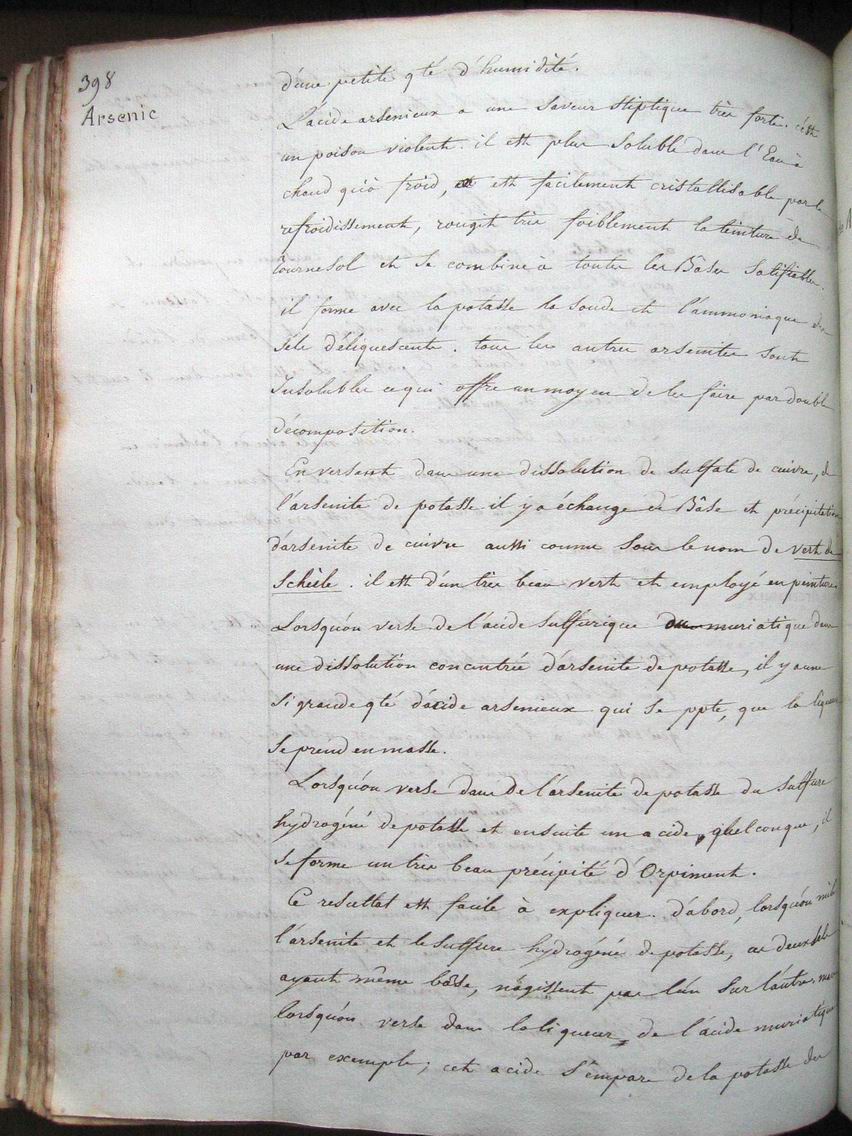 398
Arsenic
d'une petite qté d'humidité.
L'acide arsenieux a une saveur stiptique très forte. c'est
un poison violent. il est plus soluble dans l'Eau à
chaud qu'à froid, est facilement cristallisable par le
refroidissement, rougit très foiblement la teinture de
tournesol et se combine à toutes les Bâses salifiables.
il forme avec la potasse la soude et l'ammoniaque des
sels déliquescents. tous les autres arsenites sont
Insolubles ce qui offre un moyen de les faire par double
décomposition.
En versant dans une dissolution de sulfate de cuivre, de
l'arsenite de potasse il y a échange de Bâse et précipitation
d'arsenite de cuivre aussi connu sous le nom de vert de
Schèele. il est d'un très beau vert et employé en peinture.
Lorsqu'on verse de l'acide sulfurique ou muriatique dans
une dissolution concentrée d'arsenite de potasse, il y a une
si grande qté d'acide arsenieux qui se ppte, que la liqueur
se prend en masse.
Lorsqu'on verse dans de l'arsenite de potasse du sulfure
hydrogéné de potasse et ensuite un acide quelconque, il
se forme un très beau précipité d'Orpiment.
Ce resultat est facile à expliquer. d'abord, lorsqu'on mêle
l'arsenite et le sulfure hydrogéné de potasse, ces deux sels
ayant même bâse, n'agissent pas l'un sur l'autre. mais
lorsqu'on verse dans la liqueur de l'acide muriatique
par exemple; cet acide s'empare de la potasse du